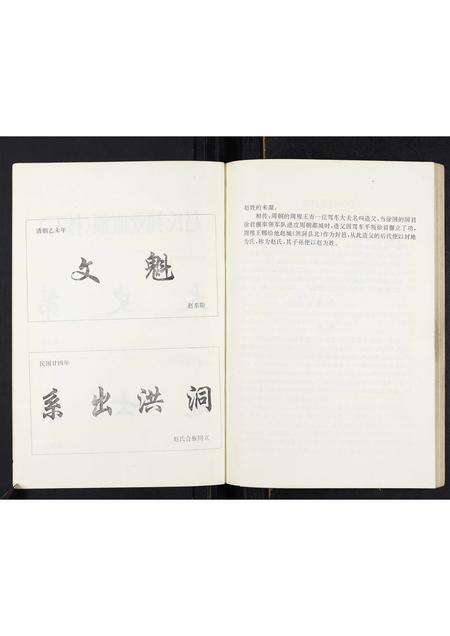 清朝乙未年
文 魁
赵东阶
民国廿四年
系 出 洪 洞
赵氏合族同立
赵姓的来源：
相传，周朝的周穆王有一位驾车大夫名叫造父，当徐国的国君
徐君偃率领军队进攻周朝都城时，造父因驾车平叛徐君偃立了功，
周穆王赐给他赵城（洪洞县北）作为封邑，从此造父的后代便以封地
为氏，称为赵氏，其子孙便以赵为姓。